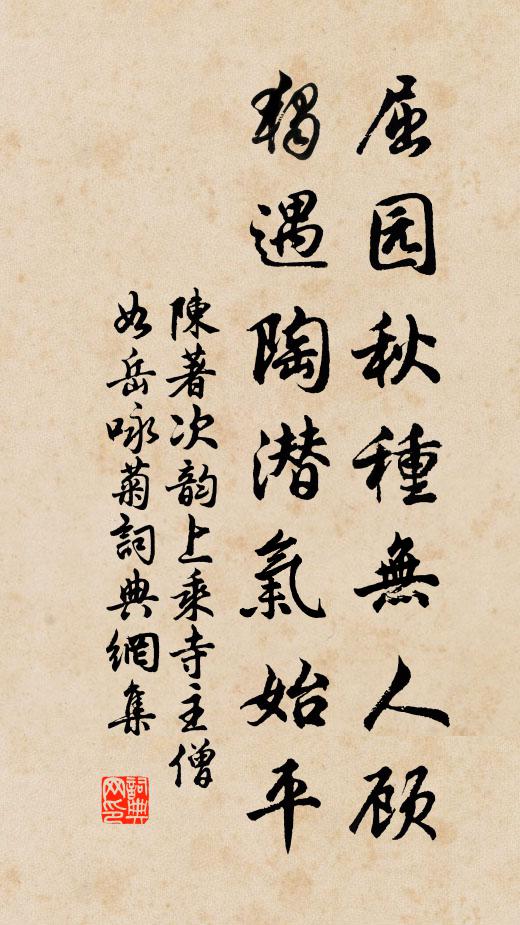 屈园秋種無人顾
獨遇陶潜氣始平
陳著次韵上乘寺主僧
如岳咏菊詞典網集
詞典网印